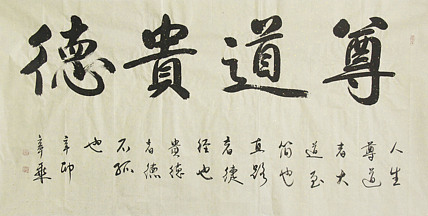 尊道貴德
人生
尊道
者大
道至
简也
直路
者捷
径也
貴德
者德
不孤
也
辛卯
年